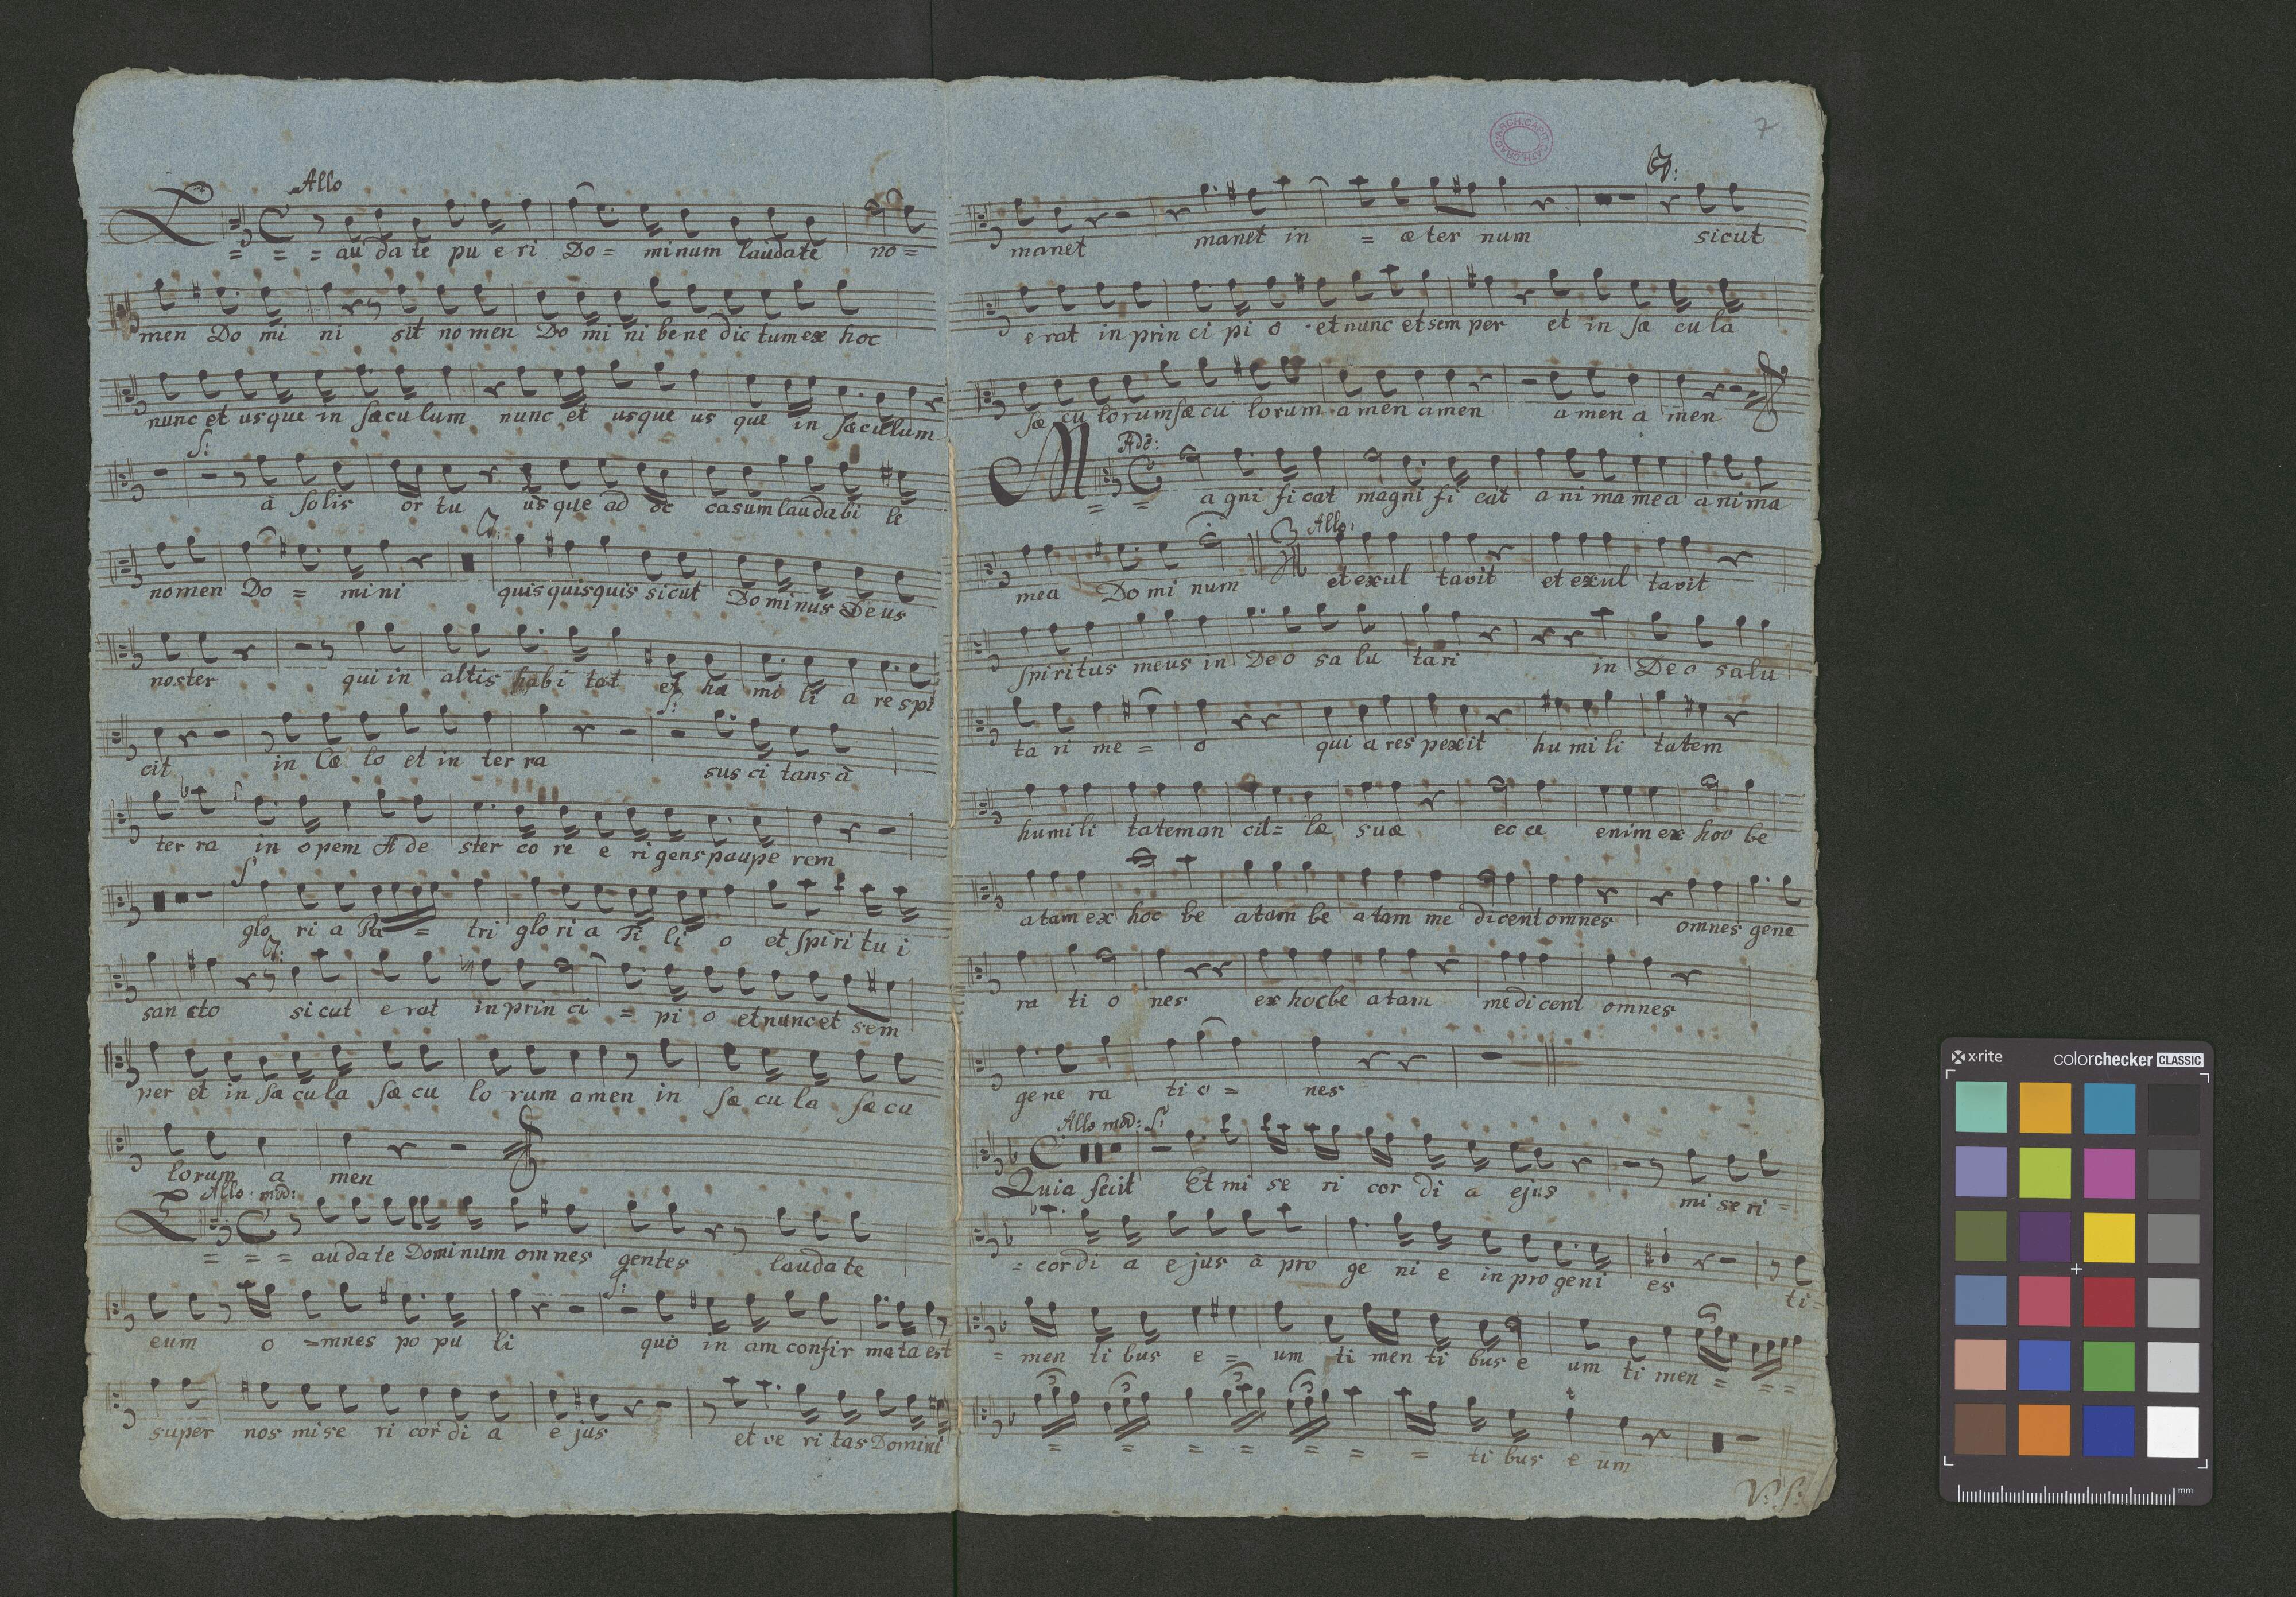 Allo
L = = = audate pu e ri Do = minum laudate no =
men Do mi ni sit no men Do mi ni bene dic tum ex hoc
nunc et usque in sæcu lum nunc et usque us que in sæculum
S:
à solis or tu usque ad oc casum laudabi le
nomen Do = mini quisquisquis sicut Dominus Deus
noster qui in altis habi tat et hu mi li a respi
cit in Cæ lo et in ter ra sus ci tans à
ter ra in opem A de ster co re e ri gens paupe rem
glo ri a Pa = tri glo ri a Fi li o et spiri tu i
san cto sicut e rat in prin ci = pi o et nunc et sem
per et in sæ cu la sæ cu lo rum amen in sæ cu la sæ cu
lorum a men
Allo: mod:
L = = = audate Dominum omnes gentes laudate
eum o =mnes po pu li quo in am confir mata est
super nos mise ri cor di a e jus et ve ri tas Domini
7
ARCH. CAPIT. CATH. CRAC.
manet manet in = æ ter num sicut
e rat in prin ci pi o et nunc et sem per et in sæ cu la
sæ cu lorum sæ cu lorum amen amen amen a men
Ado:
M = = agni fi cat magni fi cat anima mea anima
Allo:
mea Do mi num et exul tavit et exul tavit
spiritus meus in Deo sa lu tari in Deo salu
ta ri me = o qui a res pexit hu mi li tatem
humili tatem an cil= læ suæ ec ce enim ex hoc be
atam ex hoc be atam be atam me dicent omnes omnes gene
ra ti o nes ex hoc be atam me dicent omnes
gene ra ti o = nes
Allo mod: S:
Quia fecit Et mi se ri cor di a ejus mi se ri =
= cordi a e jus à pro ge ni e in progeni es ti=
= men ti bus e = um ti men ti bus e um ti men = = =
3 3 3 3
= = = = = = = ti bus e um
V: S: